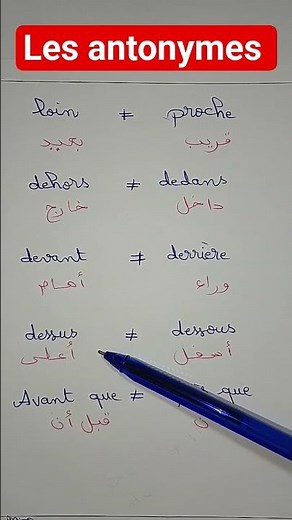 Les antonymes
loin ≠ proche
بعيد قريب
dehors ≠ dedans
خارج داخل
devant ≠ derrière
أمام وراء
dessus ≠ dessous
أعلى أسفل
Avant que ≠ que
قبل أن